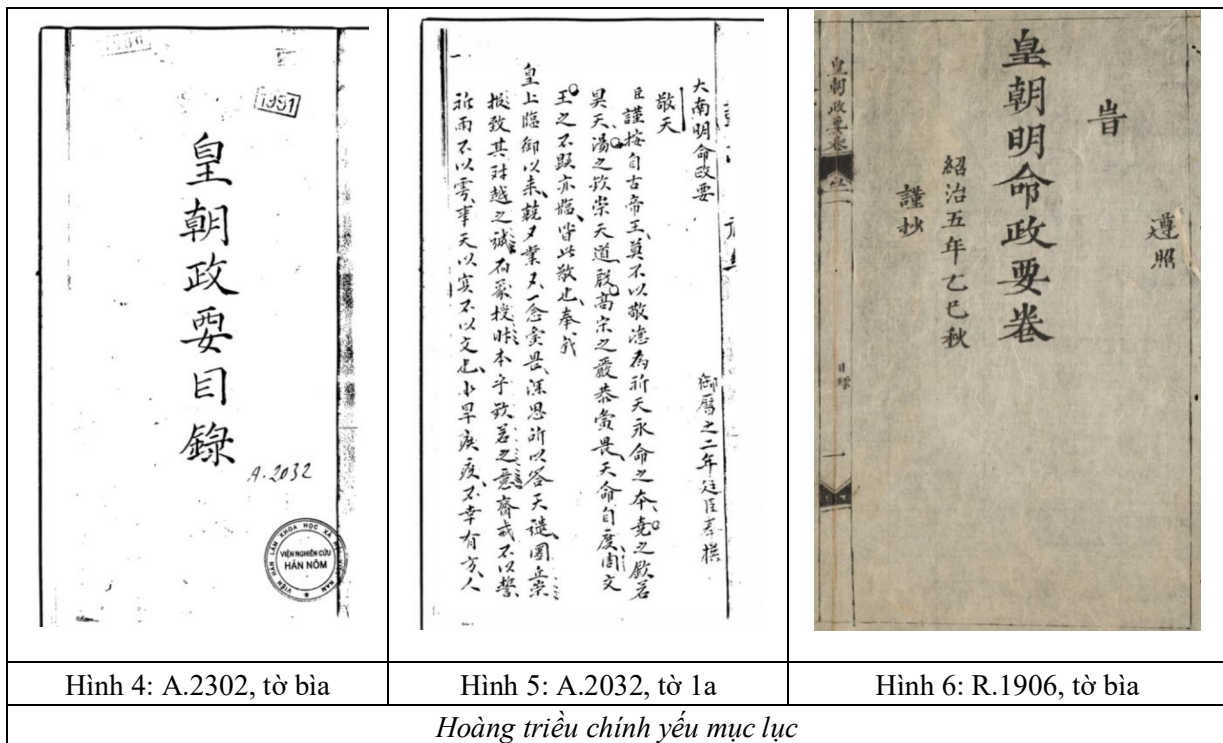 1951
皇朝政要目錄
A.2032
VIỆN NGHIÊN CỨU
HÁN NÔM
大南明命政要
御曆之二年廷臣奉撰
敬天
臣謹按自古帝王莫不以敬德為祈天永命之本堯之欽若
昊天湯之欽崇天道殷高宗之嚴恭寅畏天命自度周文
王之不顯亦臨皆此敬也奉我
皇上臨御以來兢又業又一念寅畏深思所以答天譴圖
致其對越之誠
授時本乎欽若之意齋戒不以
祈雨不以雩事天以實不以文也小旱疾疫不幸有方人
遵照
旹
皇朝明命政要卷
紹治五年乙巳秋
謹抄
皇朝政要卷
目錄
一
Hình 4: A.2302, tờ bìa
Hình 5: A.2032, tờ 1a
Hình 6: R.1906, tờ bìa
Hoàng triều chính yếu mục lục